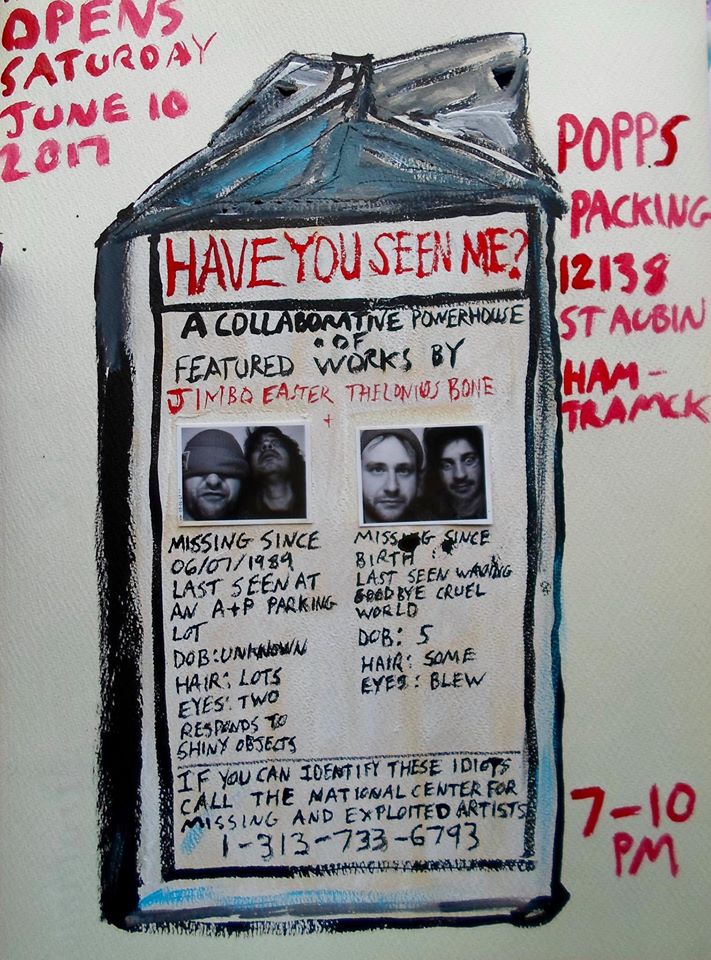 OPENS
SATURDAY
JUNE 10
2017
POPPS
PACKING
12138
ST AUBIN
HAM-
TRAMCK
7-10
PM
HAVE YOU SEEN ME?
A COLLABORATIVE POWERHOUSE
OF
FEATURED WORKS BY
JIMBO EASTER THELONIUS BONE
+
MISSING SINCE
06/07/1989
LAST SEEN AT
AN A+P PARKING
LOT
DOB: UNKNOWN
HAIR: LOTS
EYES: TWO
RESPONDS TO
SHINY OBJECTS
MISSING SINCE
BIRTH
LAST SEEN WAVING
GOODBYE CRUEL
WORLD
DOB: 5
HAIR: SOME
EYES: BLEW
IF YOU CAN IDENTIFY THESE IDIOTS
CALL THE NATIONAL CENTER FOR
MISSING AND EXPLOITED ARTISTS
1-313-733-6793